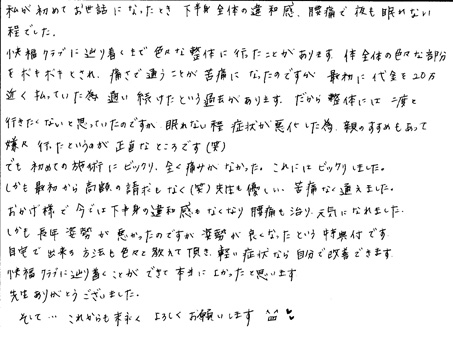 私が初めてお世話になったとき 下半身全体の違和感、腰痛で夜も眠れない
程でした。
快福クラブに辿り着くまで色々な整体に行ったことがあります。体全体の色々な部分
をボキボキとされ、痛さで通うことが苦痛になったのですが 最初に代金を20万
近く払っていた為 通い続けたという過去があります。だから整体には二度と
行きたくないと思っていたのですが 眠れない程 症状が悪化した為、親のすすめもあって
嫌々行ったというのが正直なところです(笑)
でも 初めての施術にビックリ、全く痛みがなかった。これにはビックリしました。
しかも最初から高額の請求もなく(笑) 先生も優しい 苦痛なく通えました。
おかげ様で今では下半身の違和感もなくなり 腰痛も治り、元気になれました。
しかも長年 姿勢が悪かったのですが 姿勢が良くなったという特典付です。
自宅で出来る方法も色々と教えて頂き、軽い症状なら自分で改善できます。
快福クラブに辿り着くことができて本当によかったと思います
先生ありがとうございました。
そして… これからも末永く よろしくお願いします